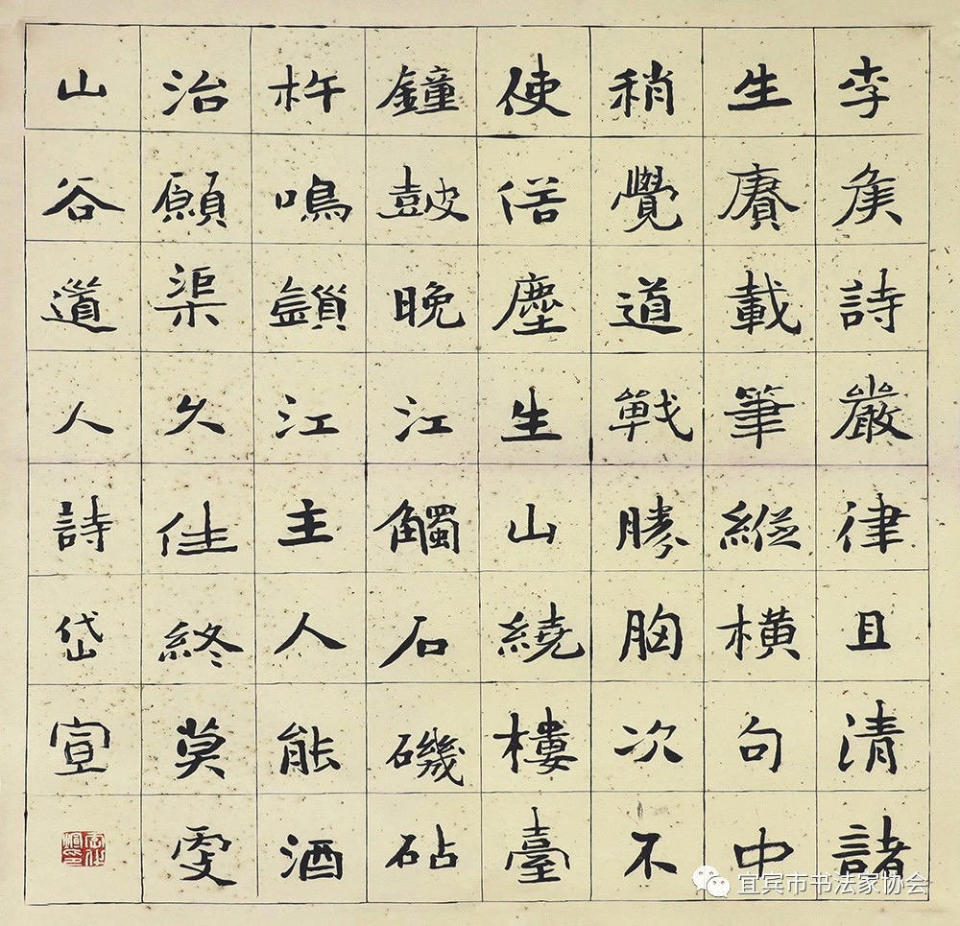 李侯詩嚴律且清諸
生賡載筆縱橫句中
稍覺道戰勝胸次不
使俗塵生山繞樓臺
鐘皷晚江觸石磯砧
杵鳴鎖江主人能酒
治願渠久佳終莫雯
山谷道人詩岱宣
宜宾市书法家协会